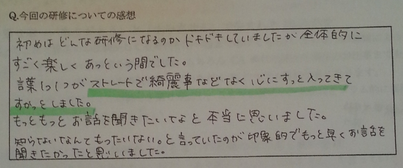 Q.今回の研修についての感想
初めはどんな研修になるのかドキドキしていましたが全体的に
すごく楽しくあっという間でした。
言葉1つ1つがストレートで綺麗事などなく心にすっと入ってきて
すかっとしました。
もっともっとお話を聞きたいなと本当に思いました。
知らないなんてもったいない。と言っていたのが印象的でもっと早くお話を
聞きたかったと思いました。